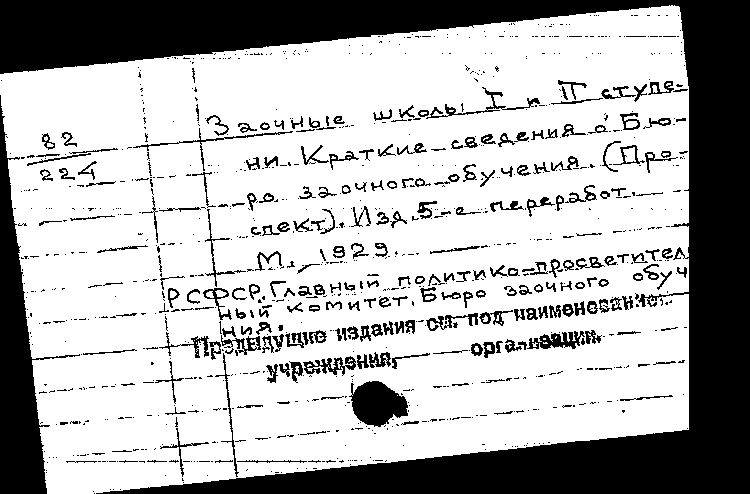 82
224
Заочные школы I и II ступе-
ни. Краткие сведения о Бю-
ро заочного обучения. (Про-
спект). Изд. 5-е переработ.
М., 1929.
РСФСР. Главный политико-просветител
ный комитет. Бюро заочного обуч
ния.
Предыдущие издания см. под наименование..
учреждения, организации.